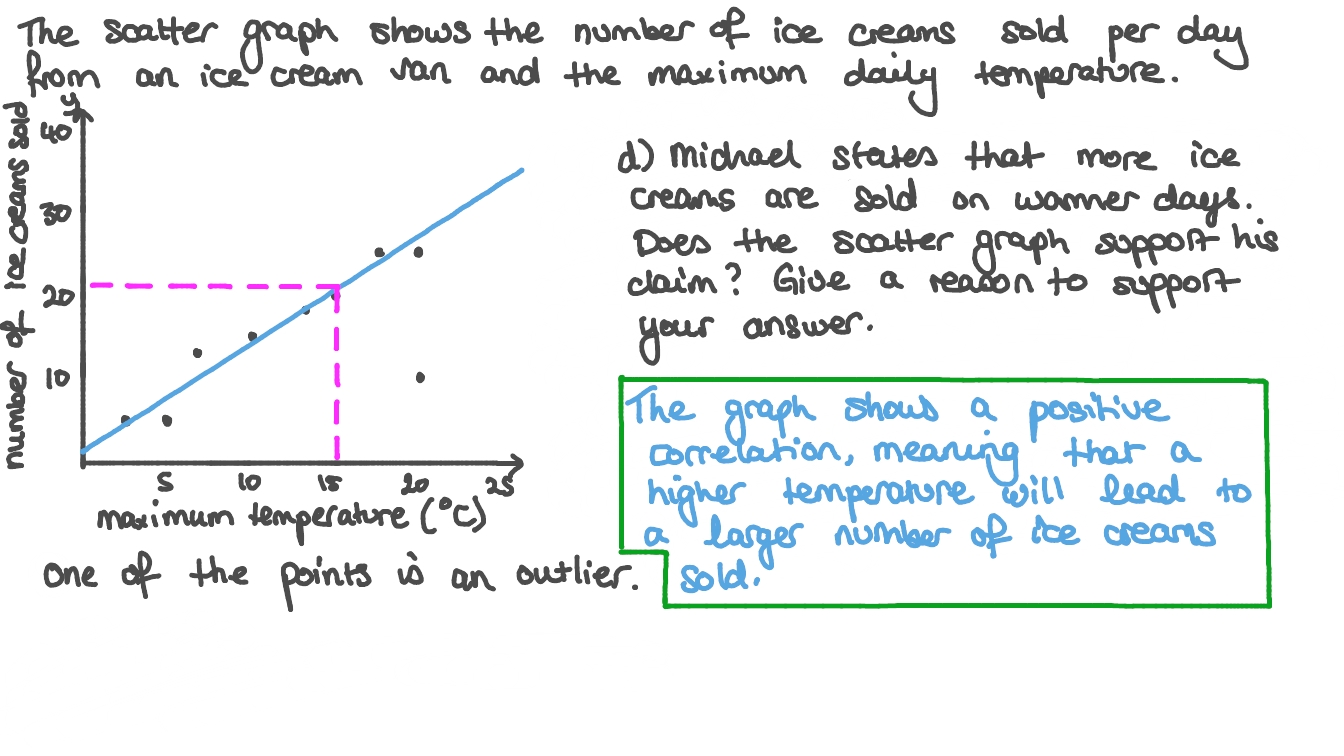 The scatter graph shows the number of ice creams sold per day
from an ice cream van and the maximum daily temperature.
number of ice creams sold
y
40
30
20
10
5 10 15 20 25
maximum temperature (°C)
One of the points is an outlier.
d) Michael states that more ice
creams are sold on warmer days.
Does the scatter graph support his
claim? Give a reason to support
your answer.
The graph shows a positive
correlation, meaning that a
higher temperature will lead to
a larger number of ice creams
sold.